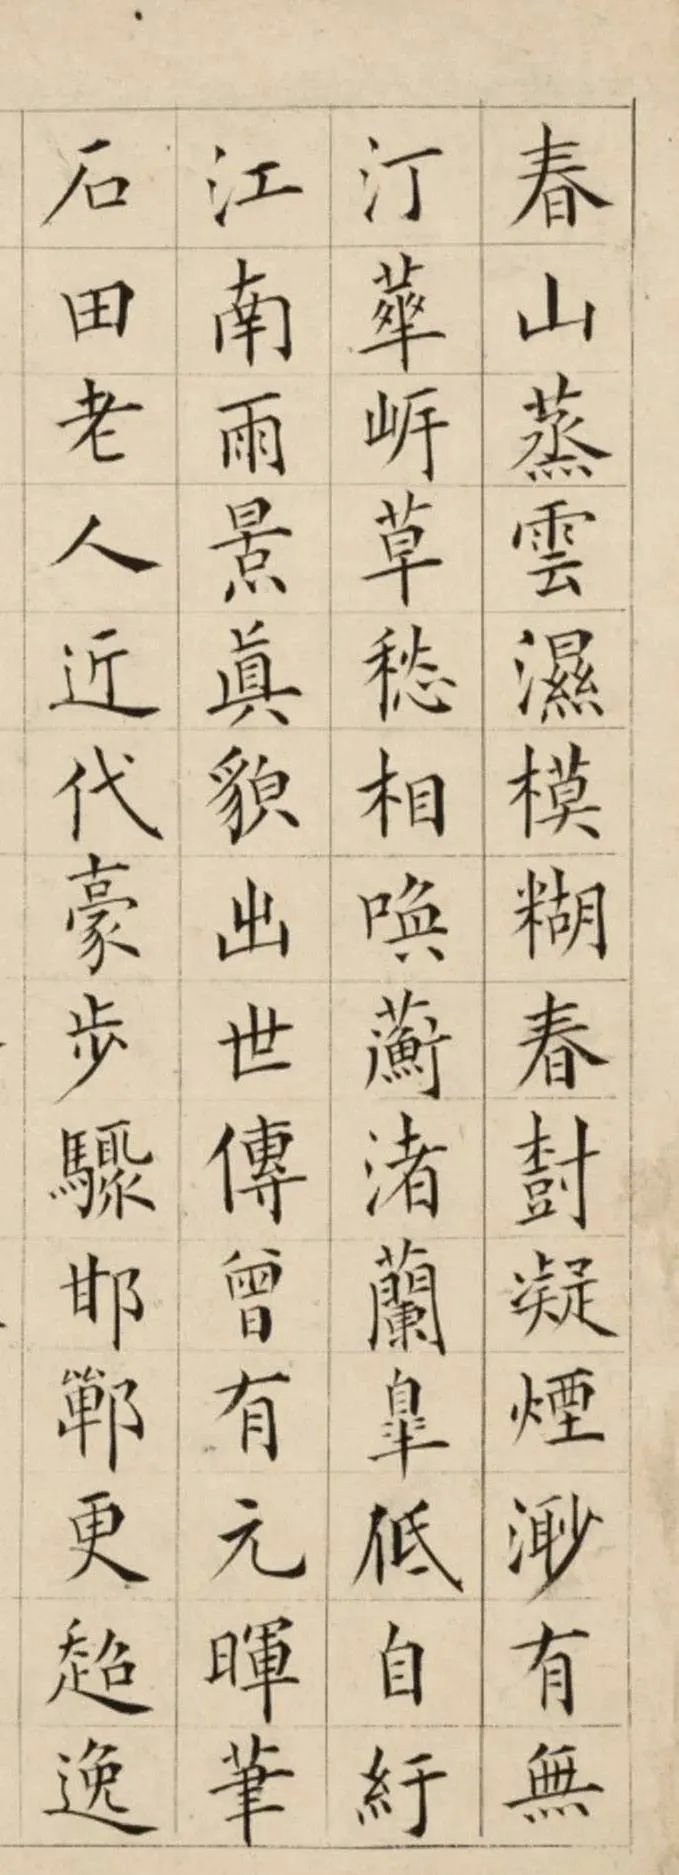 春山蒸雲濕模糊春樹凝煙渺有無
汀華岸草愁相喚蘅渚蘭皋低自紆
江南雨景眞貌出世傳曾有元暉筆
石田老人近代豪步驟邯鄲更超逸